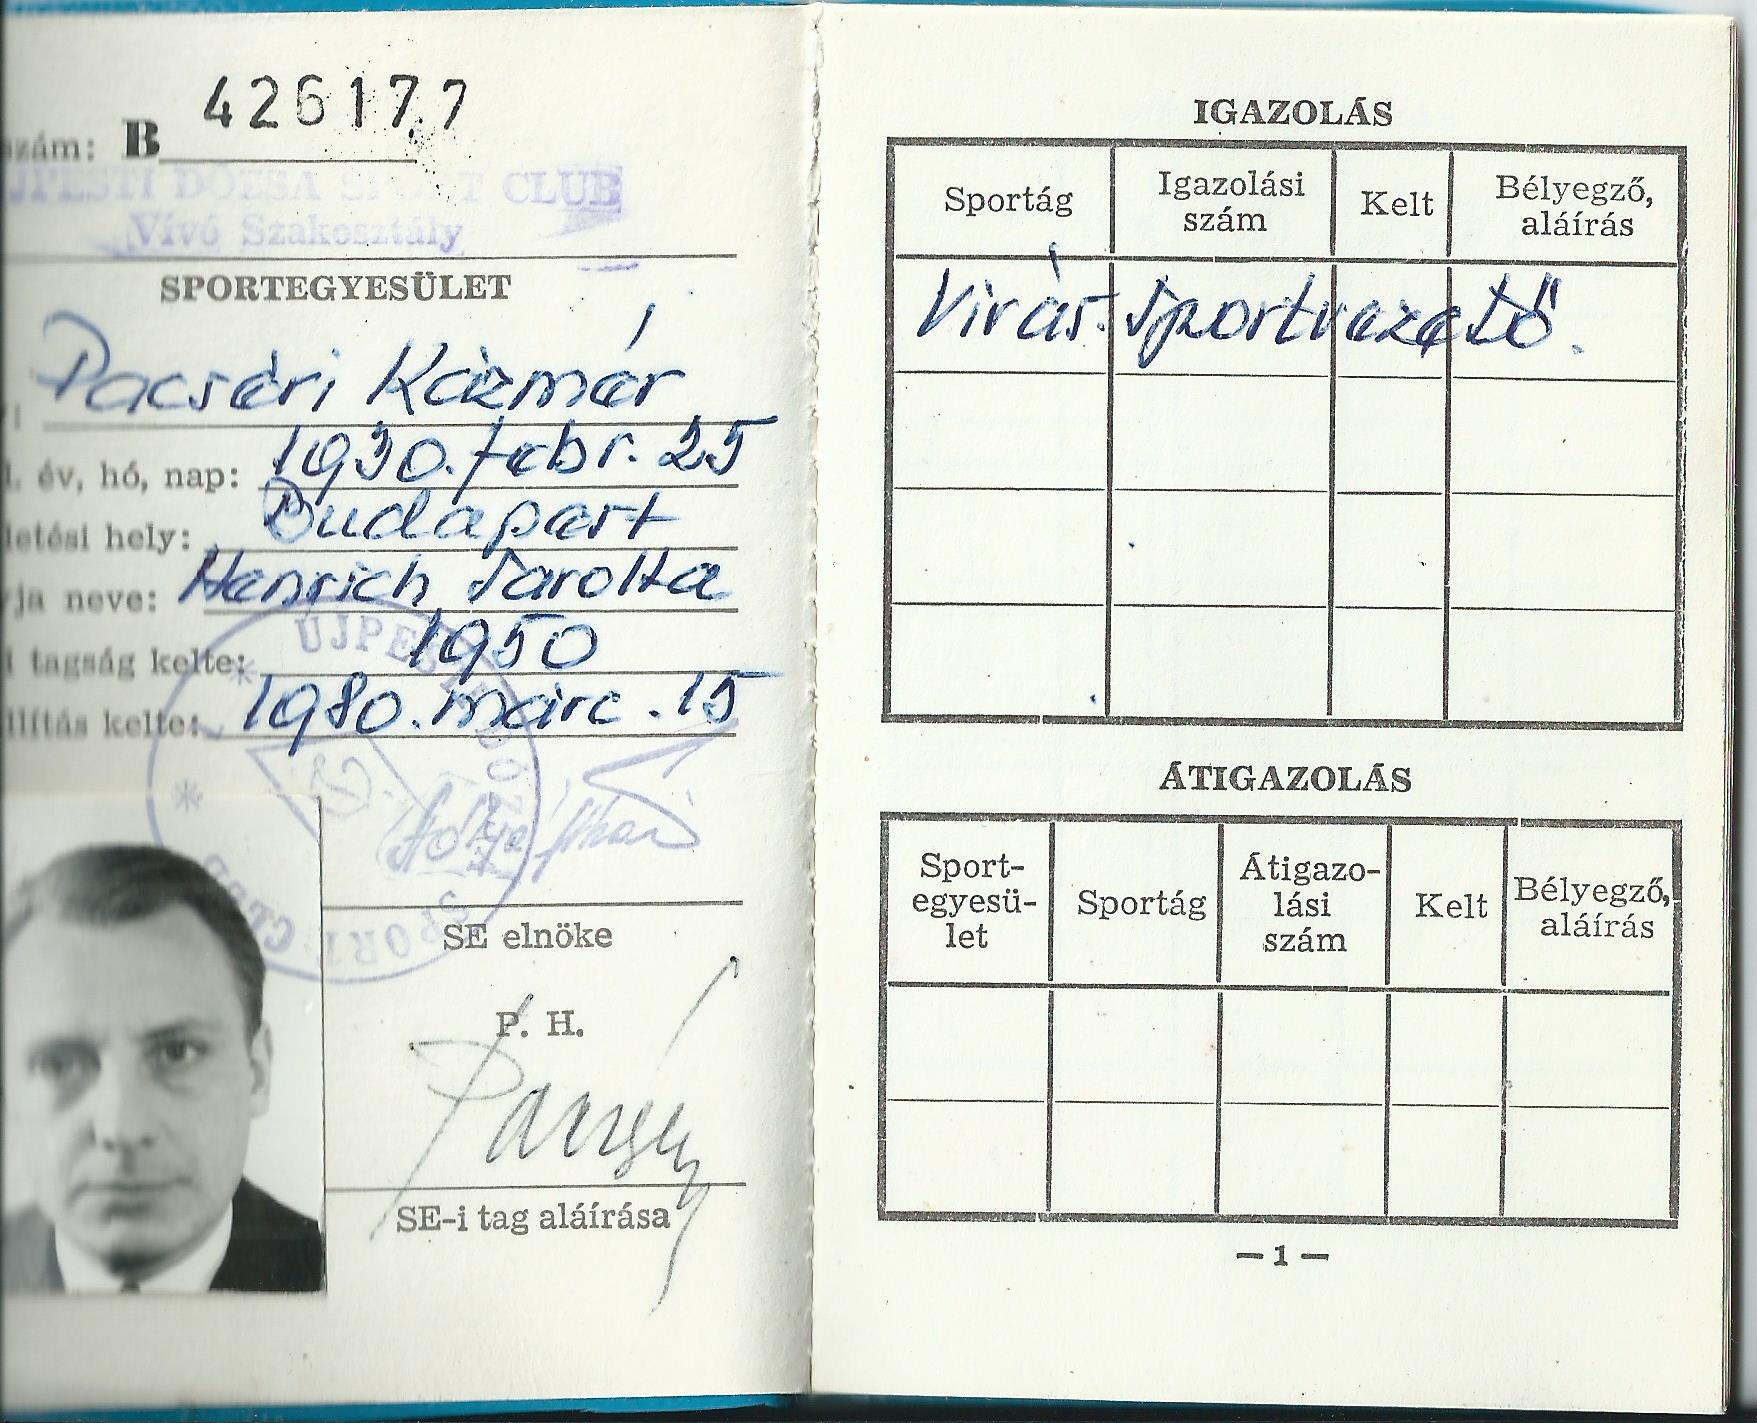 szám: B 426177
JPESTI DÓZSA SPORT CLUB
Vívó Szakosztály
SPORTEGYESÜLET
Pacséri Kázmér
év, hó, nap: 1930. febr. 25
letési hely: Budapest
ja neve: Henrich Sarolta
tagság kelte: 1950
llítás kelte: 1980. márc. 15
ÚJPESTI DÓZSA SPORT CLUB
SE elnöke
P. H.
SE-i tag aláírása
IGAZOLÁS
Sportág Igazolási szám Kelt Bélyegző, aláírás
Vívás. Sportvezető.
ÁTIGAZOLÁS
Sport-egyesü-let Sportág Átigazo-lási szám Kelt Bélyegző, aláírás
— 1 —